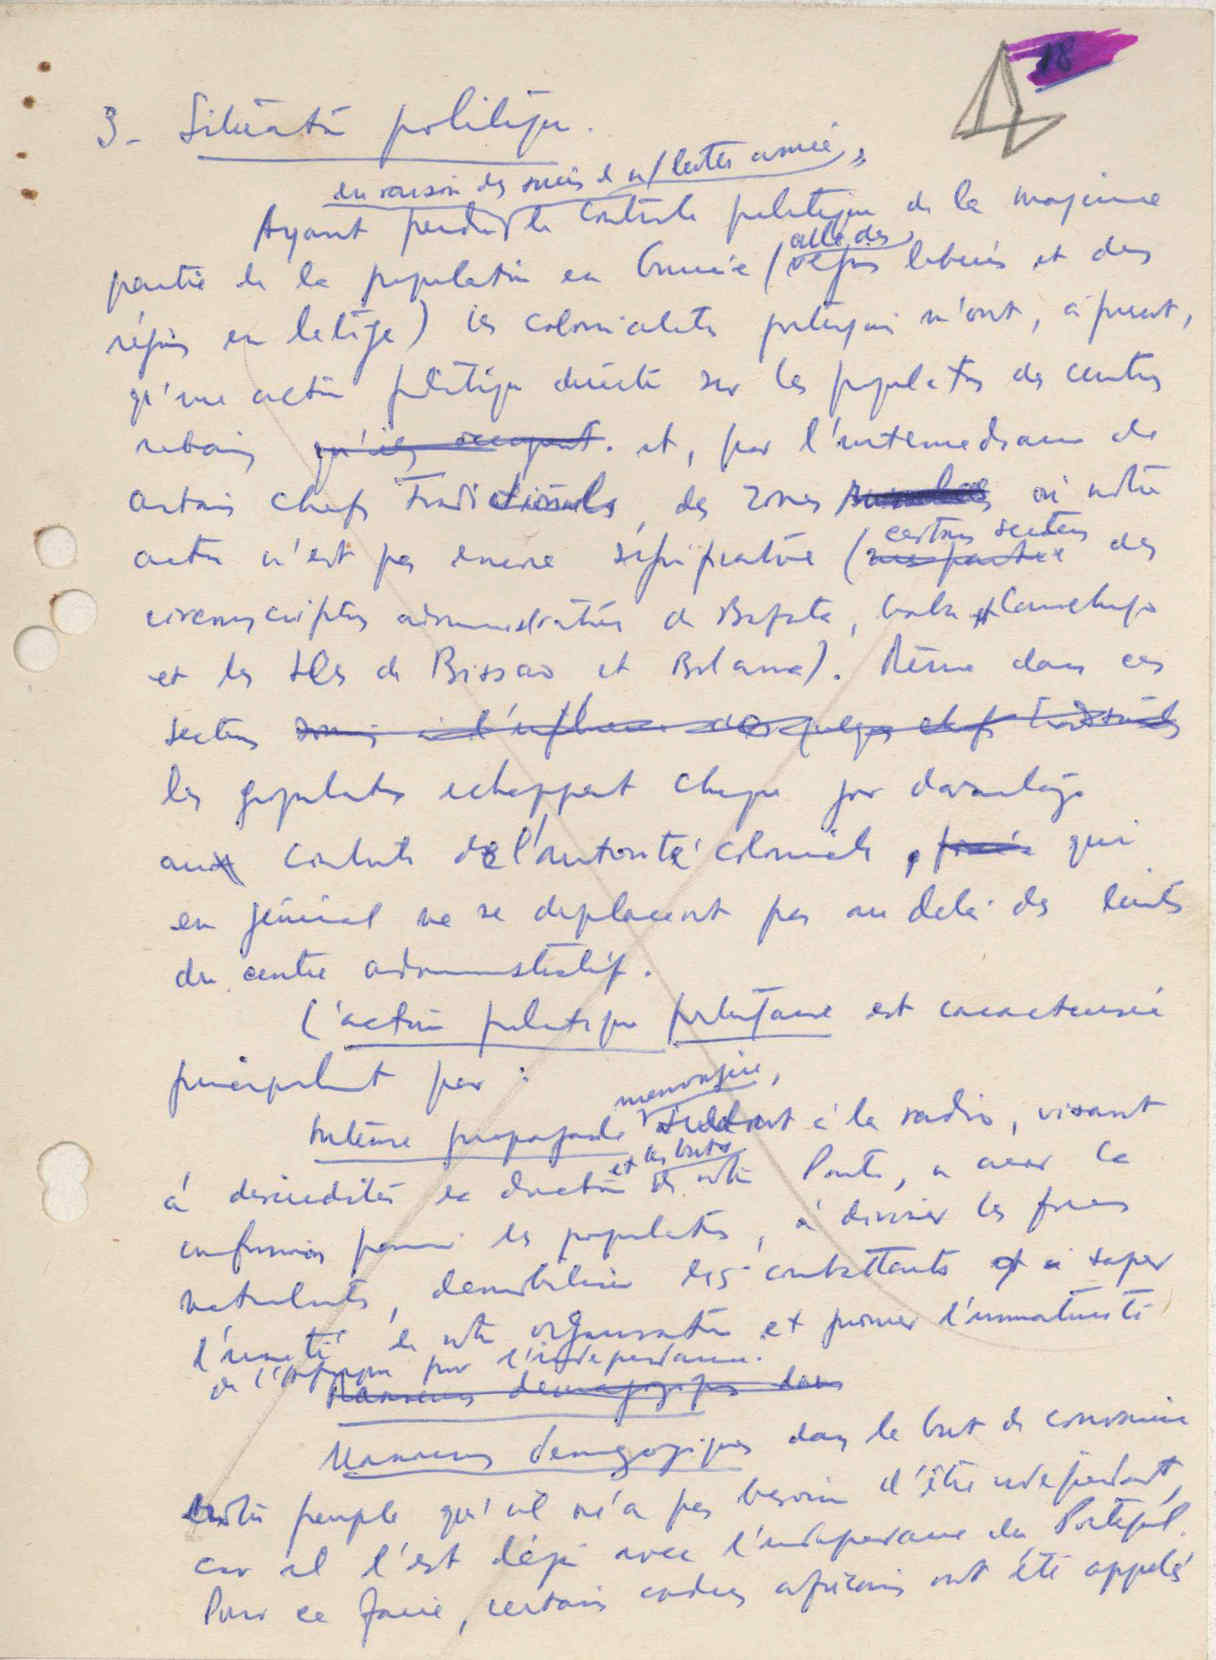 18
3- Situation politique.
en raison des succès de n/ lutte armée,
Ayant perdu le contrôle politique de la majeure
partie de la population en Guinée (celle des régions libérées et des
régions en litige) les colonialistes portugais n'ont, à présent,
qu'une action politique directe sur les populations des centres
urbains qu'ils occupent. et, par l'intermédiaire de
certains chefs traditionnels, des zones où notre
action n'est pas encore significative (certains secteurs des
circonscriptions administratives de Bafata, Gabu, Canchungo
et les Iles de Bissao et Bolama). Même dans ces
secteurs soumis à l'influence de quelques chefs traditionnels
les populations echappent chaque jour davantage
au contrôle de l'autorité coloniale, qui
en général ne se deplacent pas au delà des limites
du centre administratif.
L'action politique portugaise est caracterisée
principalement par :
mensongère,
Intense propagande surtout à la radio, visant
à desicrediter la direction et les buts de notre Parti, a creer la
confusion parmi les populations, à diviser les forces
nationalistes, demobiliser les combattants et à saper
l'unité de notre organisation et prouver l'immaturité
de l'Afrique pour l'independance.
Manoeuvres demagogiques dans
Manoeuvres demagogiques dans le but de convaincre
notre peuple qu'il n'a pas besoin d'être independant,
car il l'est déjà avec l'independance du Portugal.
Pour ce faire, certains cadres africains ont été appelés